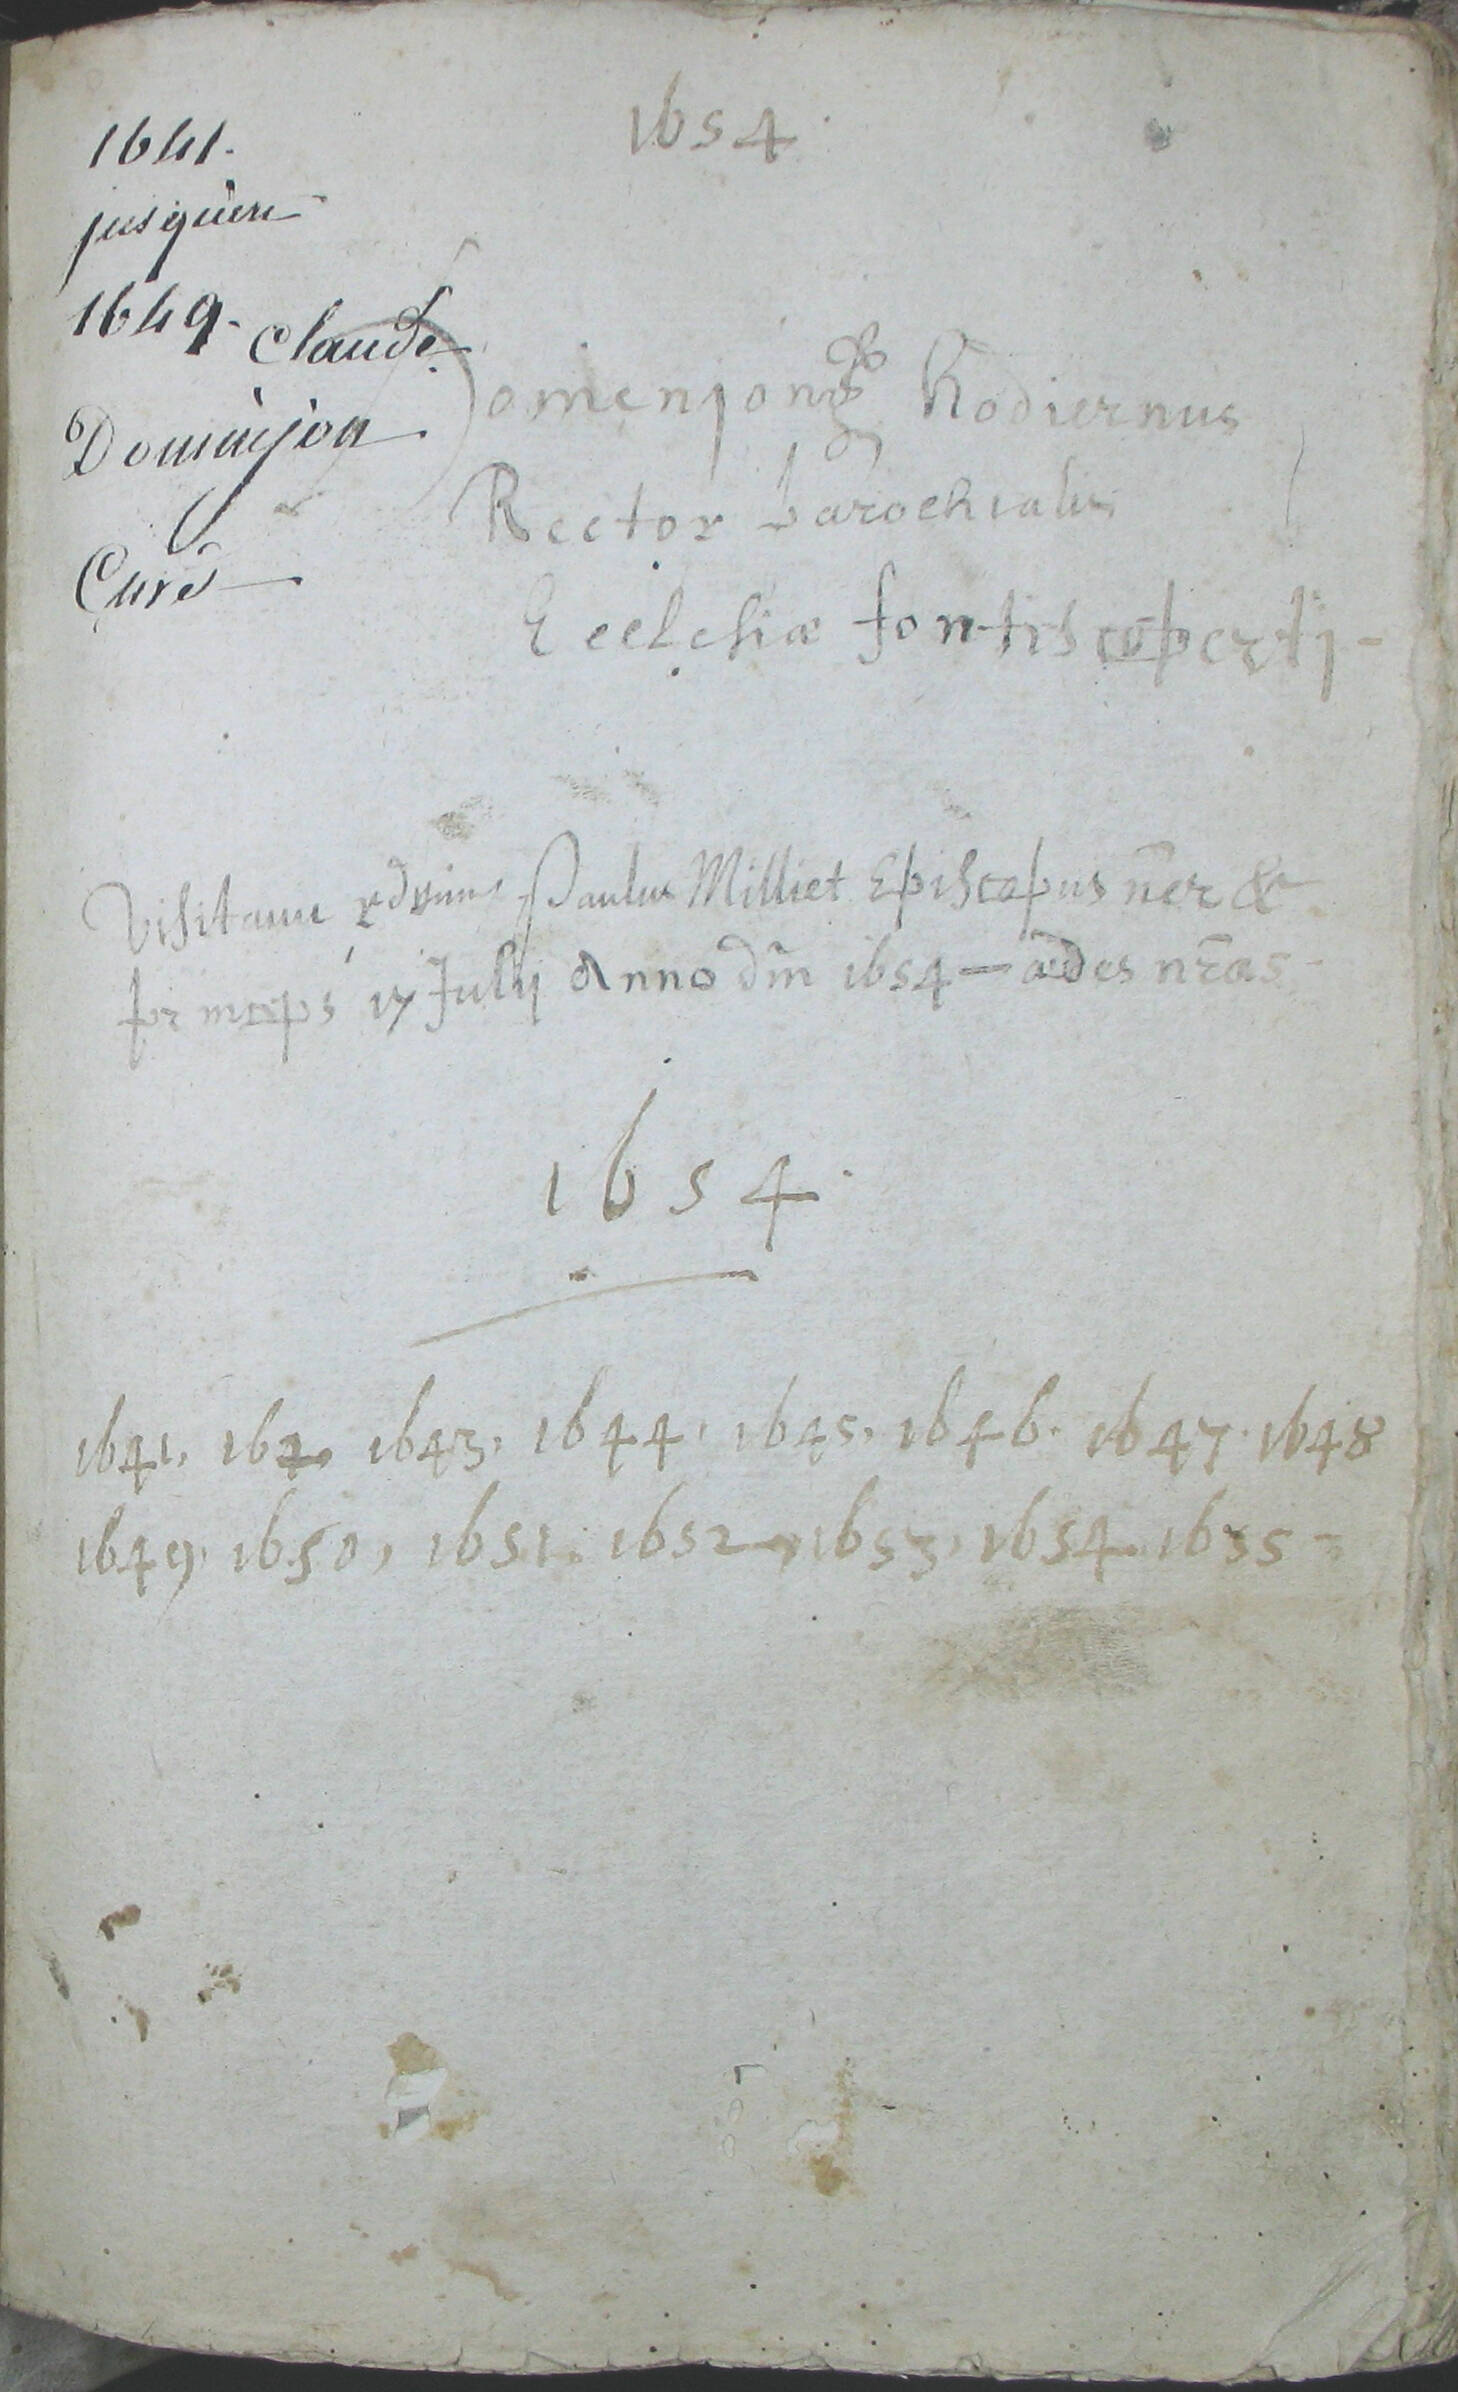 1654.
1641.
jusqu'en
1649. Claude
Dominjon
Curé
Domenjon hodiernus
Rector parochialis
Ecclesiæ fontiscoperti
Visitavit Paulus Milliet Episcopus nēr &
princeps 17 July Anno dm̄ 1654 — ædes nr̄as
1654.
1641. 164. 1643. 1644. 1645. 1646. 1647. 1648
1649. 1650, 1651. 1652, 1653, 1654. 1655 -